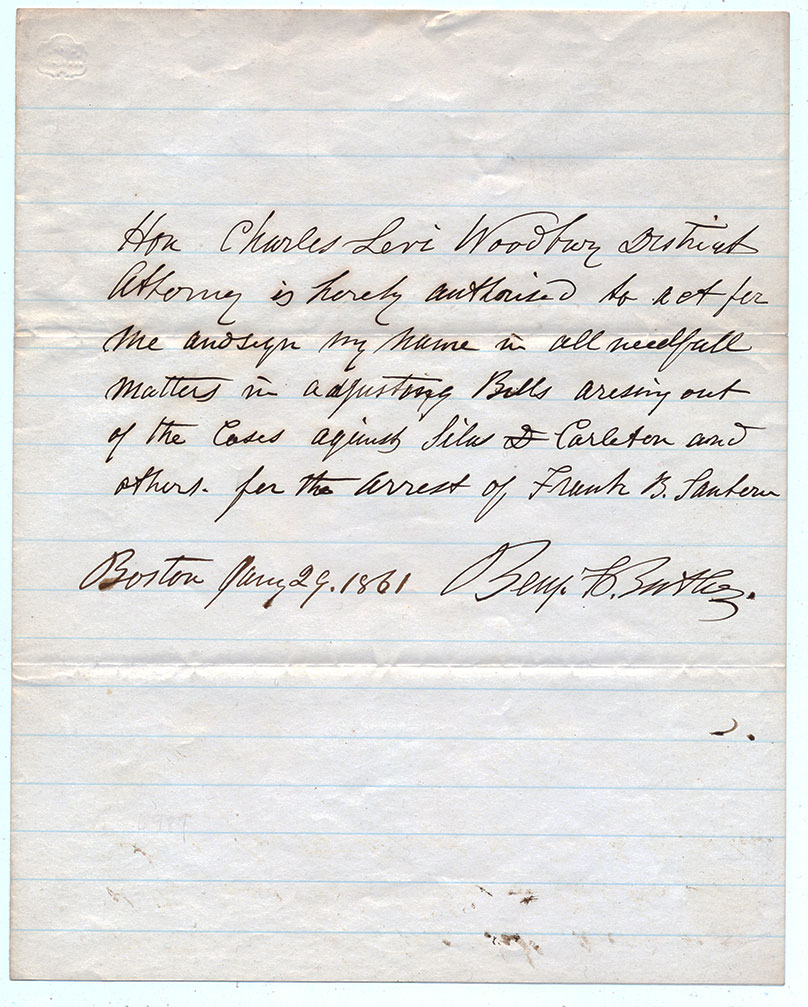 Hon Charles Levi Woodbury District
Attorney is hereby authorised to act for
me and sign my name in all needfull
matters in adjusting Bills arising out
of the Cases against Silas D Carleton and
others. for the arrest of Frank B. Sanborn
Boston Jany 29. 1861 Benj. F. Butler.